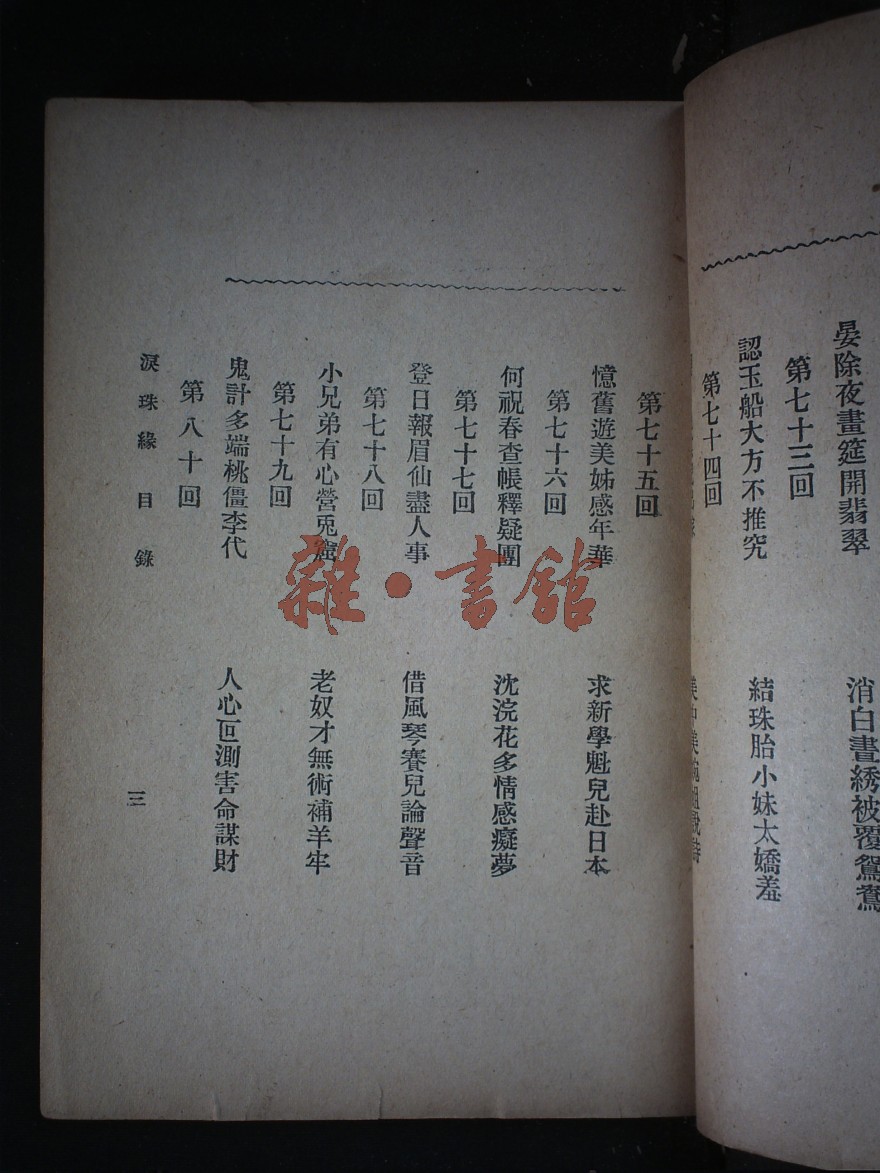 晏除夜畫筵開翡翠 消白晝綉被覆鴛鴦
第七十三回
認玉船大方不推究 結珠胎小妹太嬌羞
第七十四回
第七十五回
憶舊遊美姊感年華 求新學魁兒赴日本
第七十六回
何祝春查帳釋疑團 沈浣花多情感癡夢
第七十七回
登日報眉仙盡人事 借風琴賽兒論聲音
第七十八回
小兄弟有心營兎窟 老奴才無術補羊牢
第七十九回
鬼計多端桃僵李代 人心叵測害命謀財
第八十回
淚珠緣 目錄 三
雜·書館